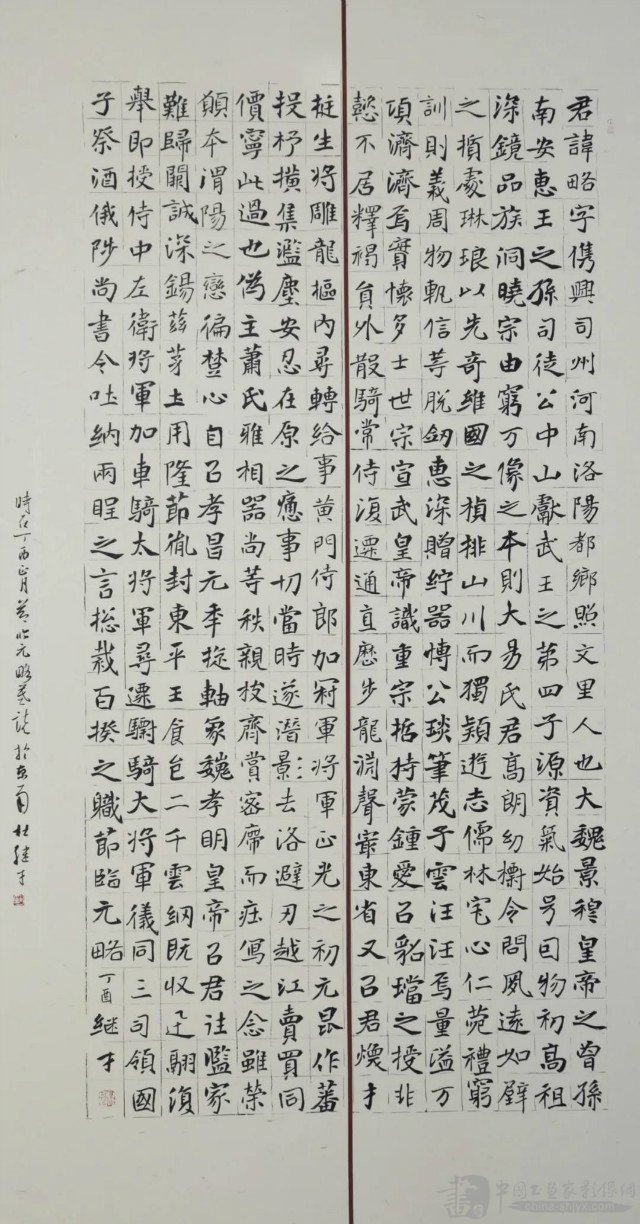 君諱略字儁興司州河南洛陽都鄉照文里人也大魏景穆皇帝之曾孫
南安惠王之孫司徒公中山獻武王之第四子源資氣始号曰物初高祖
深鏡品族洞曉宗由窮万像之本則大易氏君高朗幼擶令問夙遠如璧
之損處琳琅以先奇維國之楨排山川而獨穎遊志儒林宅心仁菀禮窮
訓則義周物軌信等脫劒惠深贈紵器博公琰筆茂子雲汪汪焉量溢万
項濟濟焉實懷多士世宗宣武皇帝識重宗哲特蒙鍾愛以貂璫之授非
懿不居釋褐員外散騎常侍復遷通直歷步龍淵聲東省又以君煥才
挺生將雕龍樞內尋轉給事黃門侍郎加冠軍將軍正光之初元昆作蕃
投杼橫集濫塵安忍在原之應事切當時遂潛影去洛避刃越江賣買同
價寧此過也偽主蕭氏雅相器尚等秩親枝齊賞密席而莊寫之念雖榮
願本渭陽之戀偏楚心自以孝昌元季旋軸象魏孝明皇帝以君往濫家
難歸闕誠深錫茲茅土用隆節胤封東平王食邑二千雲網既收逆翮復
舉即授侍中左衛將軍加車騎太將軍尋遷驃騎大將軍儀同三司領國
子祭酒俄陟尚書令吐納兩聖之言惣裁百揆之職節臨元略丁酉继才
時在丁酉正月臨元略墓誌於杜继才
中国书画家影像网
china-shjyx.com